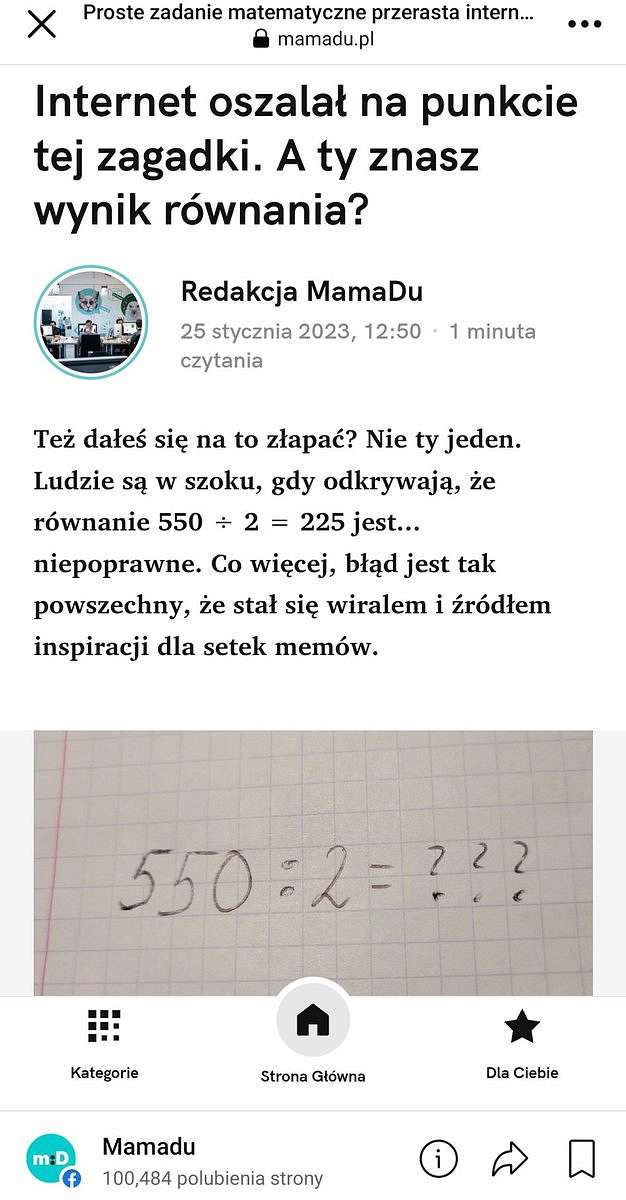 Proste zadanie matematyczne przerasta intern...
mamadu.pl
Internet oszalał na punkcie
tej zagadki. A ty znasz
wynik równania?
Redakcja MamaDu
25 stycznia 2023, 12:50 · 1 minuta
czytania
Też dałeś się na to złapać? Nie ty jeden.
Ludzie są w szoku, gdy odkrywają, że
równanie 550 ÷ 2 = 225 jest...
niepoprawne. Co więcej, błąd jest tak
powszechny, że stał się wiralem i źródłem
inspiracji dla setek memów.
550 : 2 = ? ? ?
Kategorie
Strona Główna
Dla Ciebie
m:D
Mamadu
100,484 polubienia strony